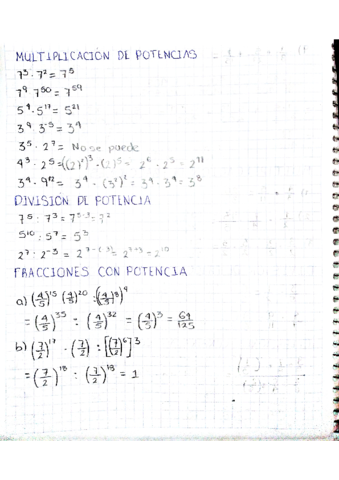 MULTIPLICACION DE POTENCIAS
7³ · 7² = 7⁵
7⁹ 7⁵⁰ = 7⁵⁹
5⁴ · 5¹⁷ = 5²¹
3⁹ · 3⁻⁵ = 3⁴
3⁵ · 2⁷ = No se puede
4³ · 2⁵ = ((2)²)³ · (2)⁵ = 2⁶ · 2⁵ = 2¹¹
DIVISION DE POTENCIA
7⁵ : 7³ = 7⁵⁻³ = 7²
5¹⁰ : 5⁷ = 5³
2⁷ : 2⁻³ = 2⁷⁻⁽⁻³⁾ = 2⁷⁺³ = 2¹⁰
FRACCIONES CON POTENCIA
a) (4/5)¹⁵ (4/5)²⁰ : ((4/5)⁸)⁴
= (4/5)³⁵ : (4/5)³² = (4/5)³ = 64/125
b) (7/2)¹⁷ · (7/2) : [(7/2)⁶]³
= (7/2)¹⁸ : (7/2)¹⁸ = 1